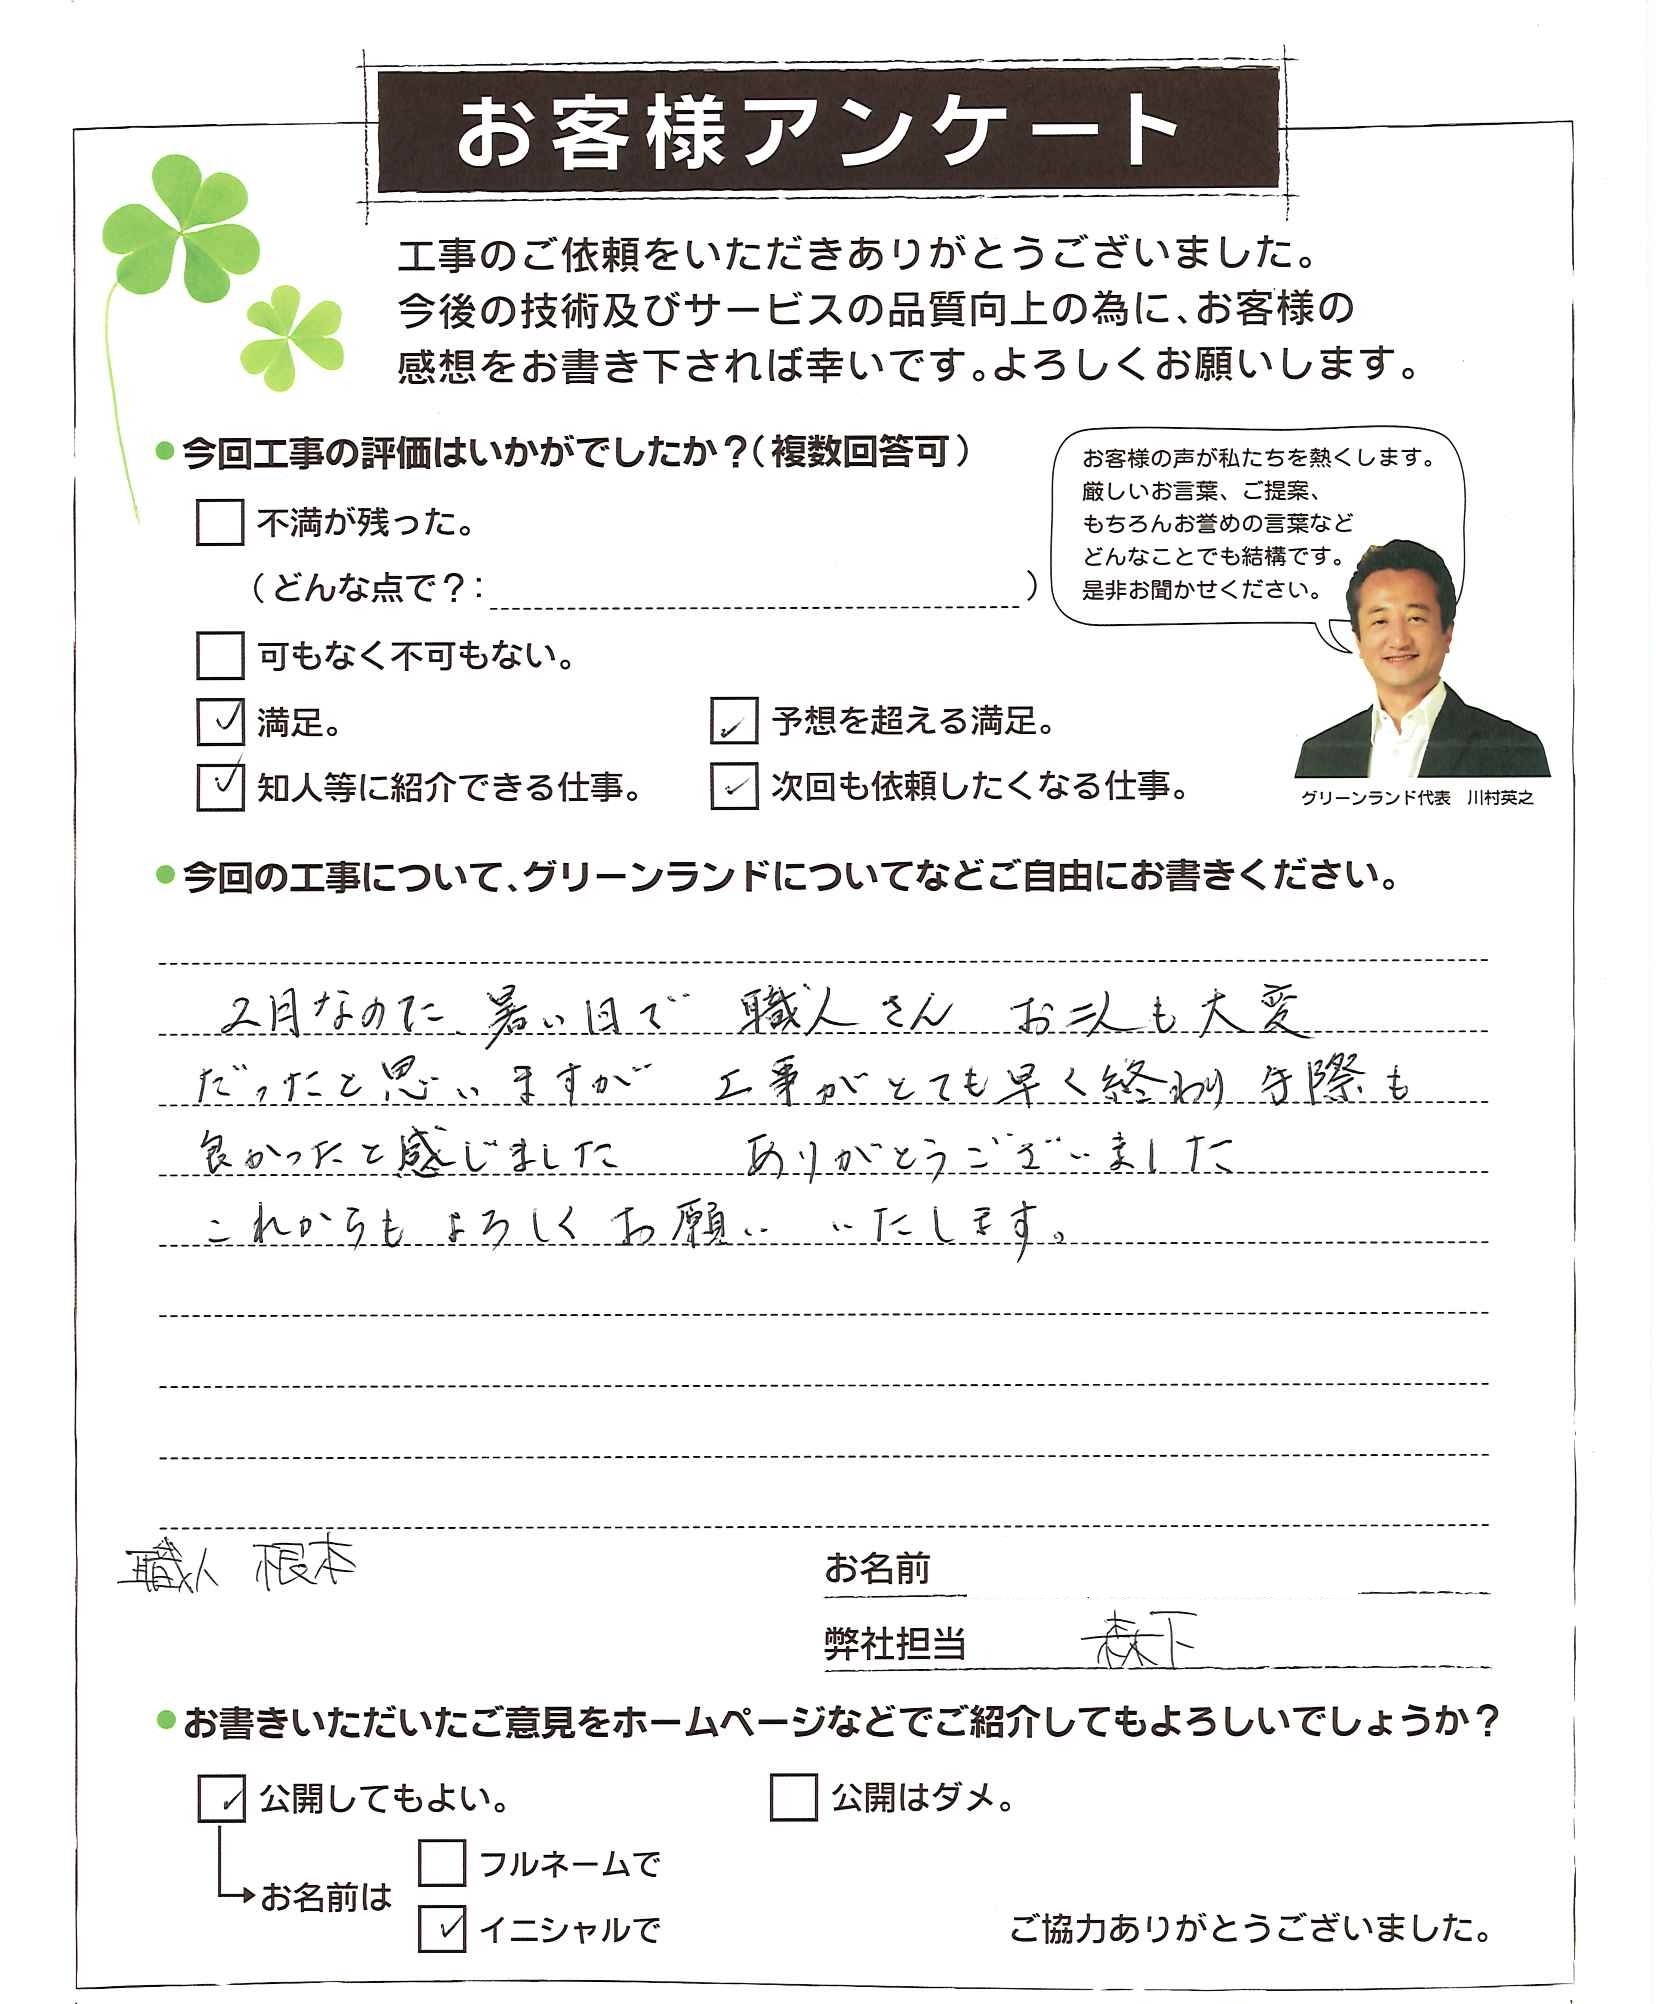 お客様アンケート
工事のご依頼をいただきありがとうございました。
今後の技術及びサービスの品質向上の為に、お客様の
感想をお書き下されば幸いです。よろしくお願いします。
●今回工事の評価はいかがでしたか？（複数回答可）
不満が残った。
（どんな点で？：　　　）
可もなく不可もない。
✓満足。
✓予想を超える満足。
✓知人等に紹介できる仕事。
✓次回も依頼したくなる仕事。
お客様の声が私たちを熱くします。
厳しいお言葉、ご提案、
もちろんお誉めの言葉など
どんなことでも結構です。
是非お聞かせください。
グリーンランド代表　川村英之
●今回の工事について、グリーンランドについてなどご自由にお書きください。
2月なのに 暑い日で 職人さん お二人も大変
だったと思いますが 工事がとても早く終わり 手際も
良かったと感じました ありがとうございました
これからもよろしくお願いいたします。
職人 根本
お名前
弊社担当 森下
●お書きいただいたご意見をホームページなどでご紹介してもよろしいでしょうか？
✓公開してもよい。
公開はダメ。
→お名前は
フルネームで
✓イニシャルで
ご協力ありがとうございました。